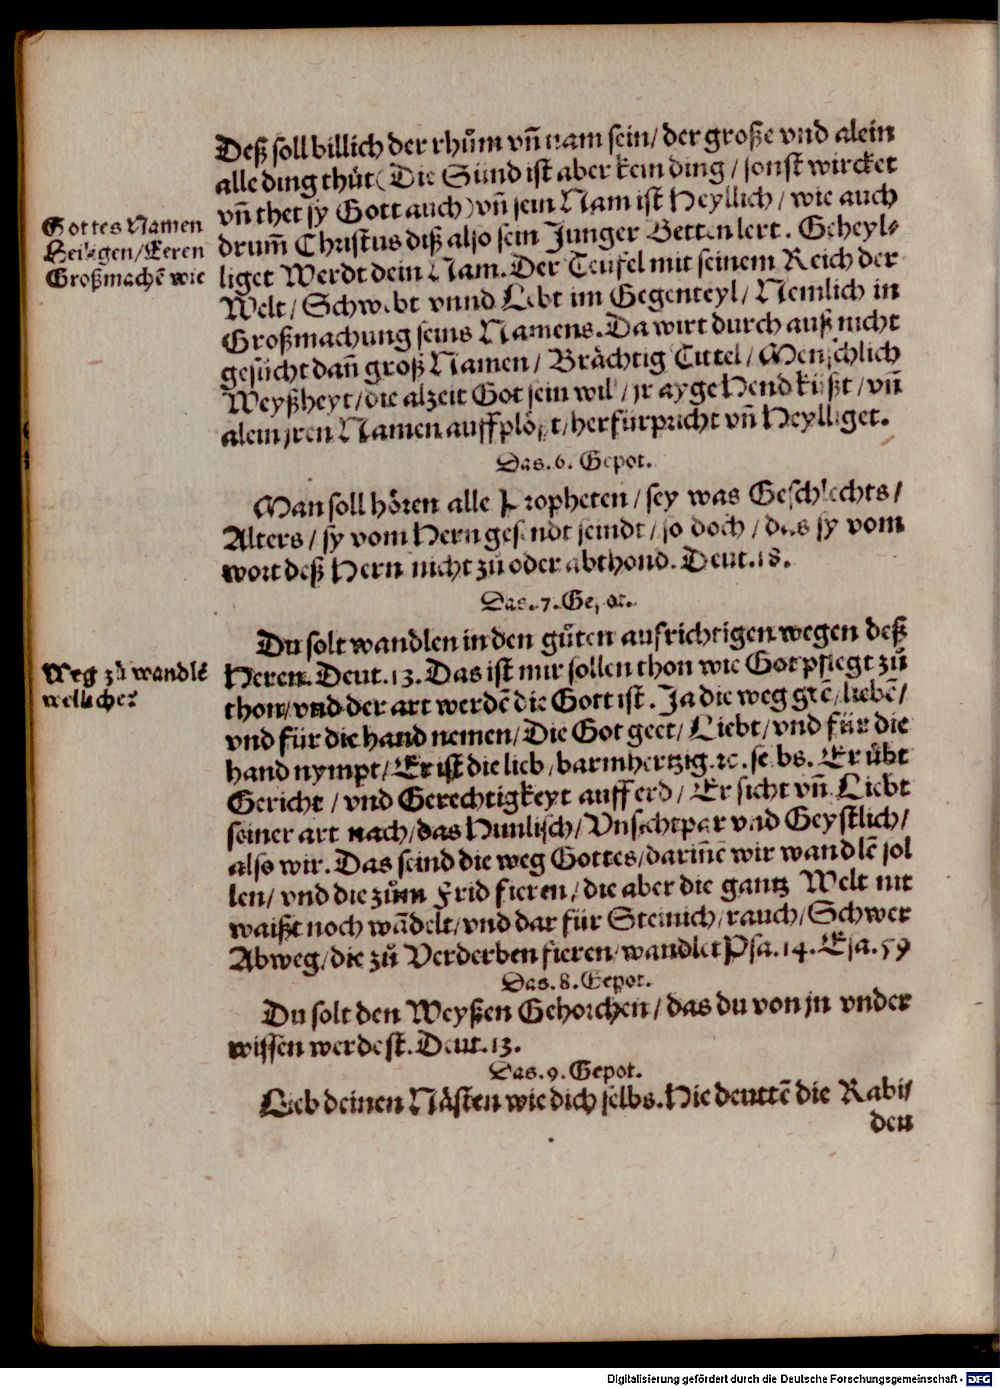 Deß soll billich der rhům vñ nam sein/ der große vnd alein
alle ding thůt (Die Sünd ist aber kein ding / sonst wircket
vñ thet sy Gott auch) vñ sein Nam ist Heyllich / wie auch
Gottes Namen
Heiligen/Eeren
Großmachē wie
drum̄ Christus diß also sein Junger Betten lert. Geheyl⸗
liget Werdt dein Nam. Der Teufel mit seinem Reich der
Welt / Schwebt vnnd Lebt im Gegenteyl / Nemlich in
Großmachung seins Namens. Da wirt durch auß nicht
gesůcht dañ groß Namen / Brächtig Tittel / Menschlich
Weyßheyt / die alzeit Got sein wil / jr ayge Hend küßt / vñ
alein jren Namen auffplößt / herfürpricht vñ Heylliget.
Das. 6. Gepot.
Man soll hören alle Propheten / sey was Geschlechts /
Alters / sy vom Hern gesendt seindt / so doch / das sy vom
wort deß Hern nicht zů oder abthond. Deut. 18.
Das. 7. Gepot.
Du solt wandlen in den gůten aufrichtigen wegen deß
Weg zů wandlē
welliche?
Heren. Deut. 13. Das ist mir sollen thon wie Got pflegt zů
thon/ vnd der art werdē die Gott ist. Ja die weg geē / liebē /
vnd für die hand nemen / Die Got geet / Liebt / vnd für die
hand nympt / Er ist die lieb / barmhertzig. ꝛc. selbs. Er übt
Gericht / vnd Gerechtigkeyt auff erd / Er sicht vñ Liebt
seiner art nach / das Himlisch / Vnsichtpar vnd Geystlich /
also wir. Das seind die weg Gottes / darinē wir wandlē sol
len / vnd die zům Frid fieren / die aber die gantz Welt nit
waißt noch wādelt / vnd dar für Steinich / rauch / Schwer
Abweg / die zů Verderben fieren / wandlet Psa. 14. Esa. 59
Das. 8. Gepot.
Du solt den Weyßen Gehorchen / das du von jn vnder
wissen werdest. Deut. 13.
Das. 9. Gepot.
Lieb deinen Nästen wie dich selbs. Hie deuttē die Rabi/
den
Digitalisierung gefördert durch die Deutsche Forschungsgemeinschaft - DFG